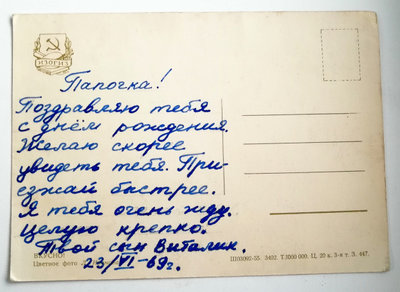 ИЗОГИЗ
Папочка!
Поздравляю тебя
с днём рождения.
Желаю скорее
увидеть тебя. При-
езжай быстрее.
Я тебя очень жду.
Целую крепко.
Твой сын Виталик.
23/VI-69г.
ВКУСНО!
Цветное фото
Ш03092-55. 3492. Т.1000 000. Ц. 20 к. 3-я т. З. 447.